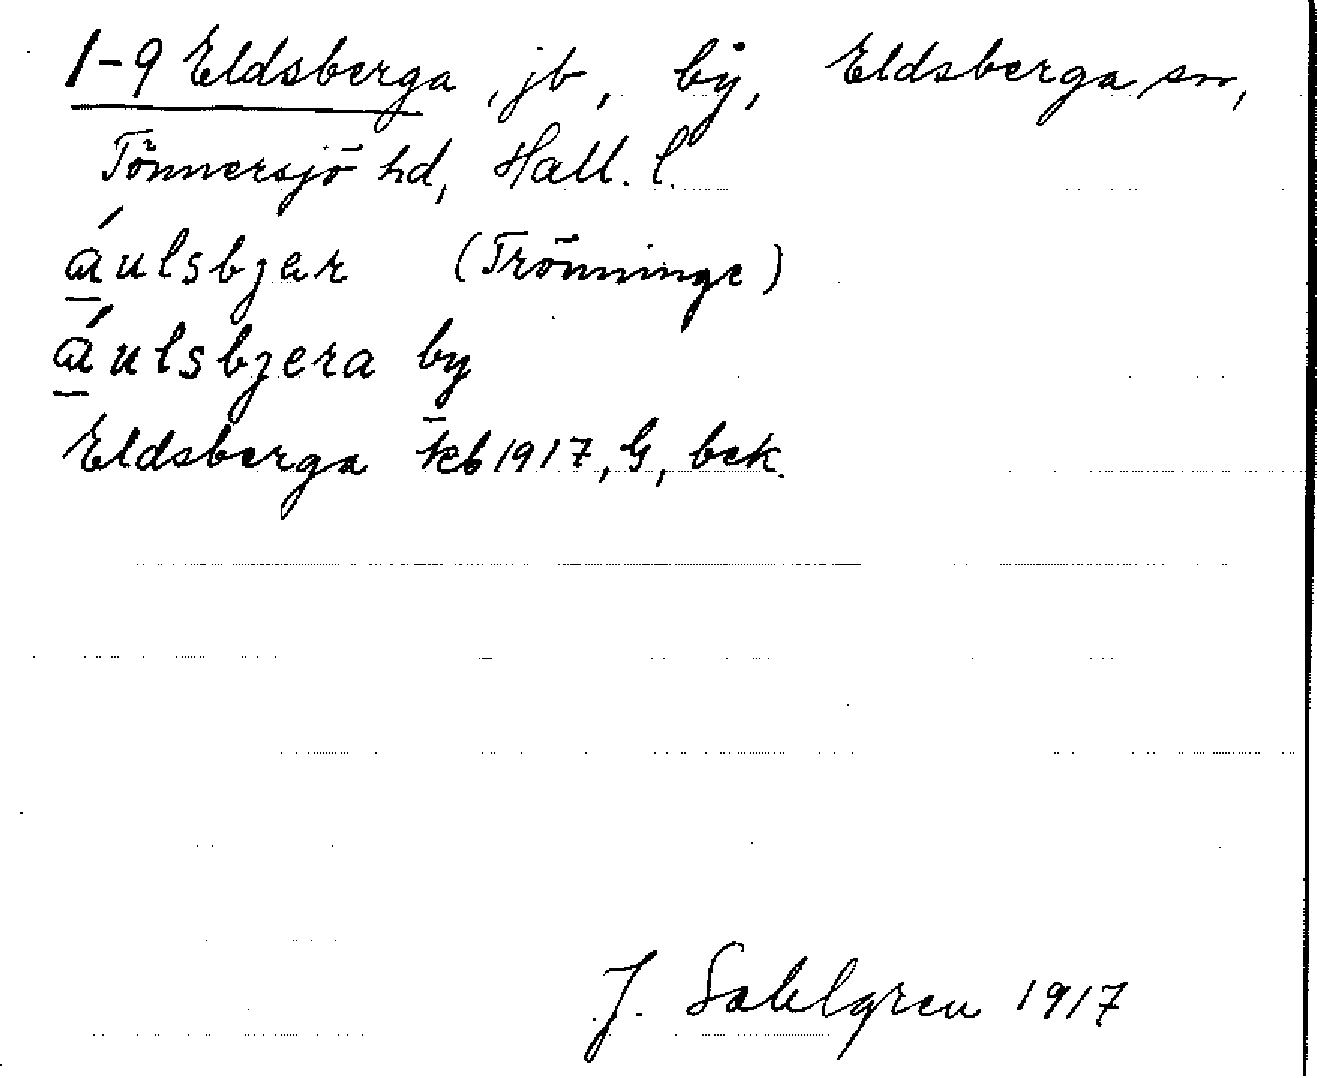 1-9 Eldsberga, jb, by, Eldsberga sn,
Tönnersjö hd, Hall. l.
áulsbjar (Trönninge)
áulsbjera by
Eldsberga kb 1917, G, bek.
J. Sahlgren 1917